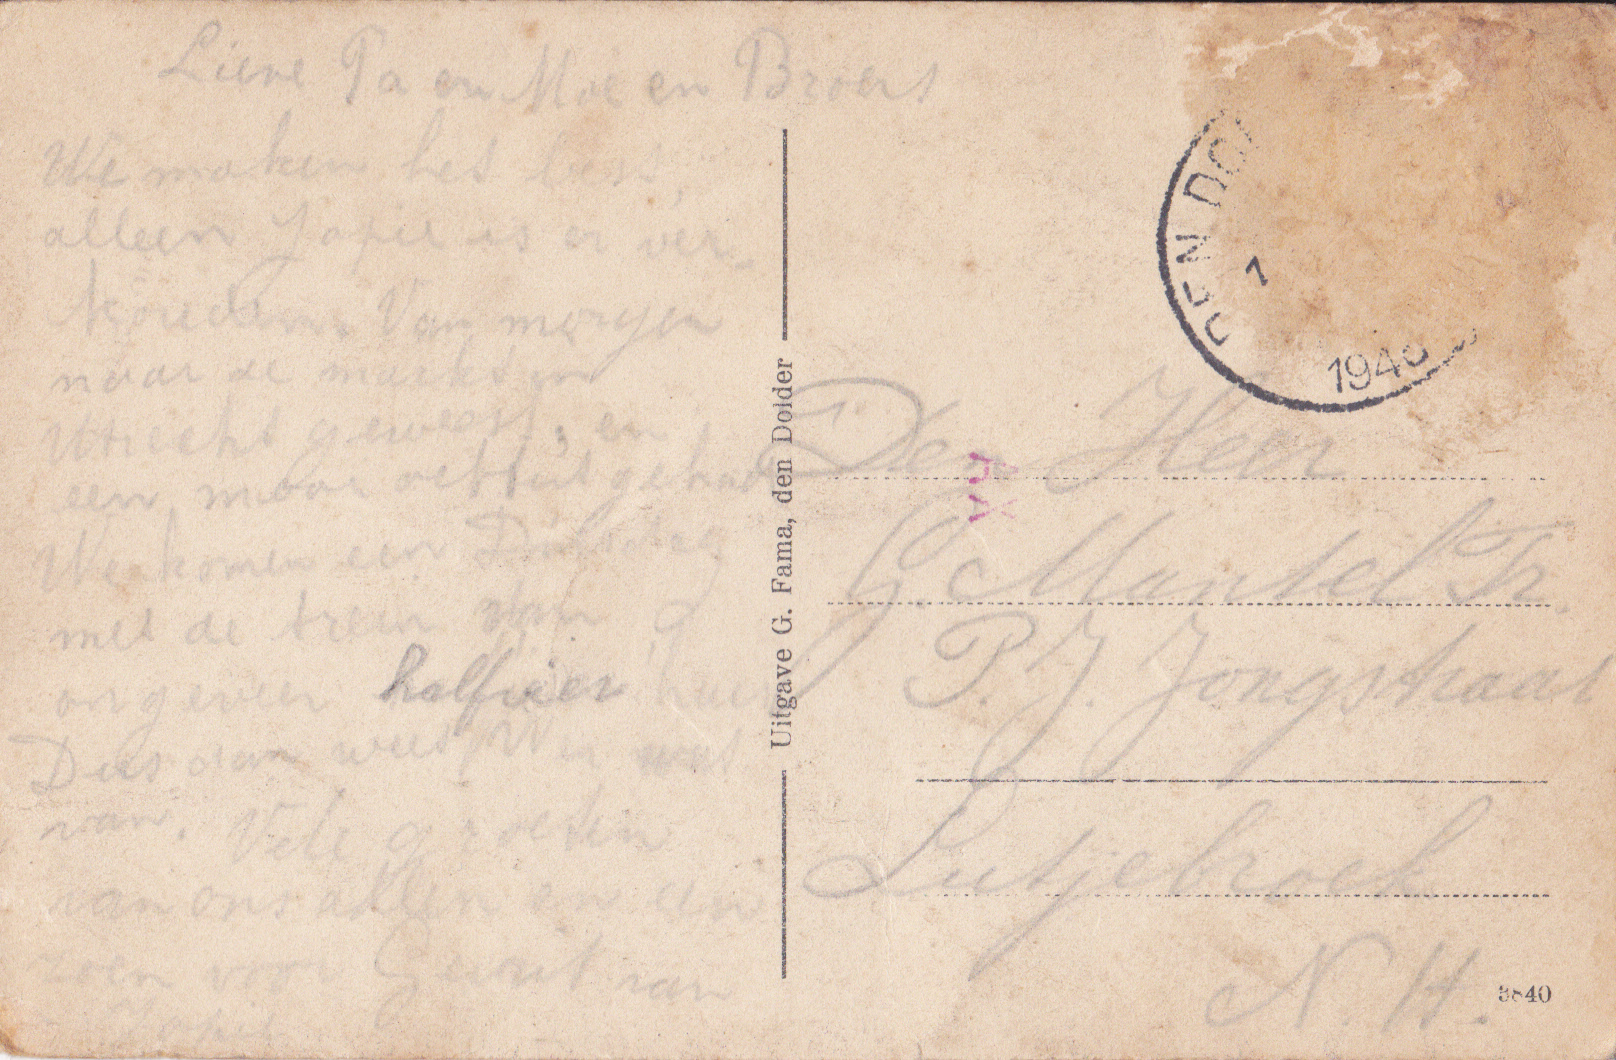 Lieve Pa en Moe en Broers
We maken het best,
alleen Japie is er ver-
kouden. Van morgen
naar de markt in
Utrecht geweest, en
een mooi gehad
We komen een Dinsdag
met de trein van
ongeveer halfvier hier
Dus dan weet U er wat
van. Vele groeten
van ons allen en een
zoen voor Gerrit van
Japie
Uitgave G. Fama, den Dolder
DEN DOL
1
1940
Den Heer
G. Mantel Tz.
P. J. Jongstraat
Lutjebroek
N. H.
5840